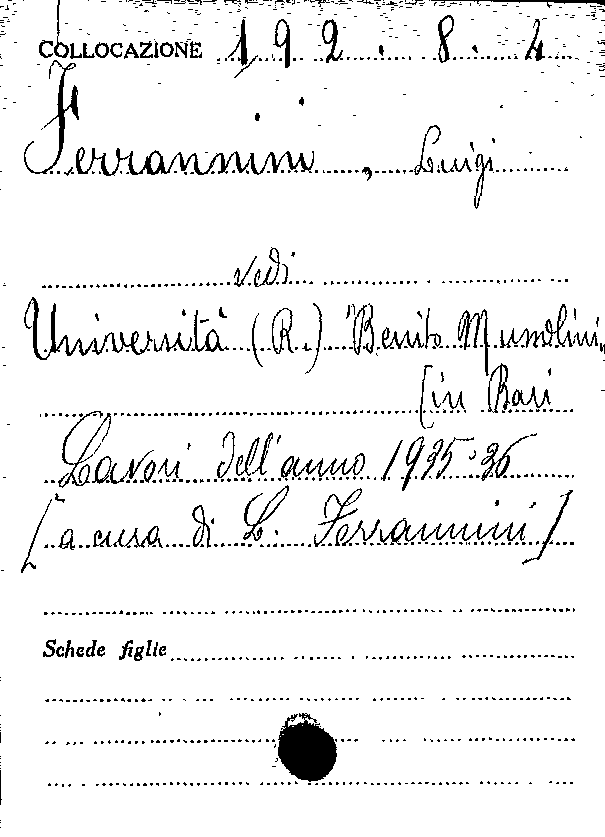 COLLOCAZIONE 192.8.4
Ferrannini, Luigi
vedi
Università (R.) "Benito Mussolini"
[in Bari
Lavori dell'anno 1935-36
[a cura di L. Ferrannini]
Schede figlie